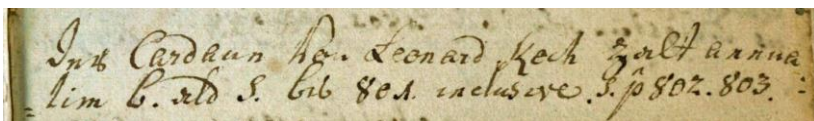 Inß Cardaun hon Leonard Koch zalt annua
tim b. ald S. biß 801. inclusive. S. p 802. 803.